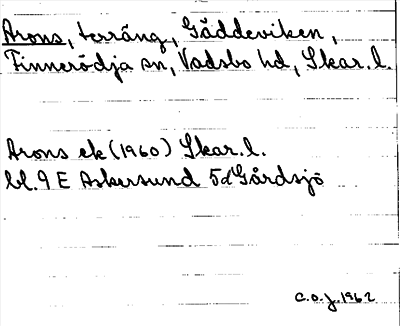 Arons, terräng, Gäddeviken,
Finnerödja sn, Vadsbo hd, Skar. l.
Arons ek (1960) Skar. l.
bl. 9 E Askersund 5d Gårdsjö
C.O.J. 1962